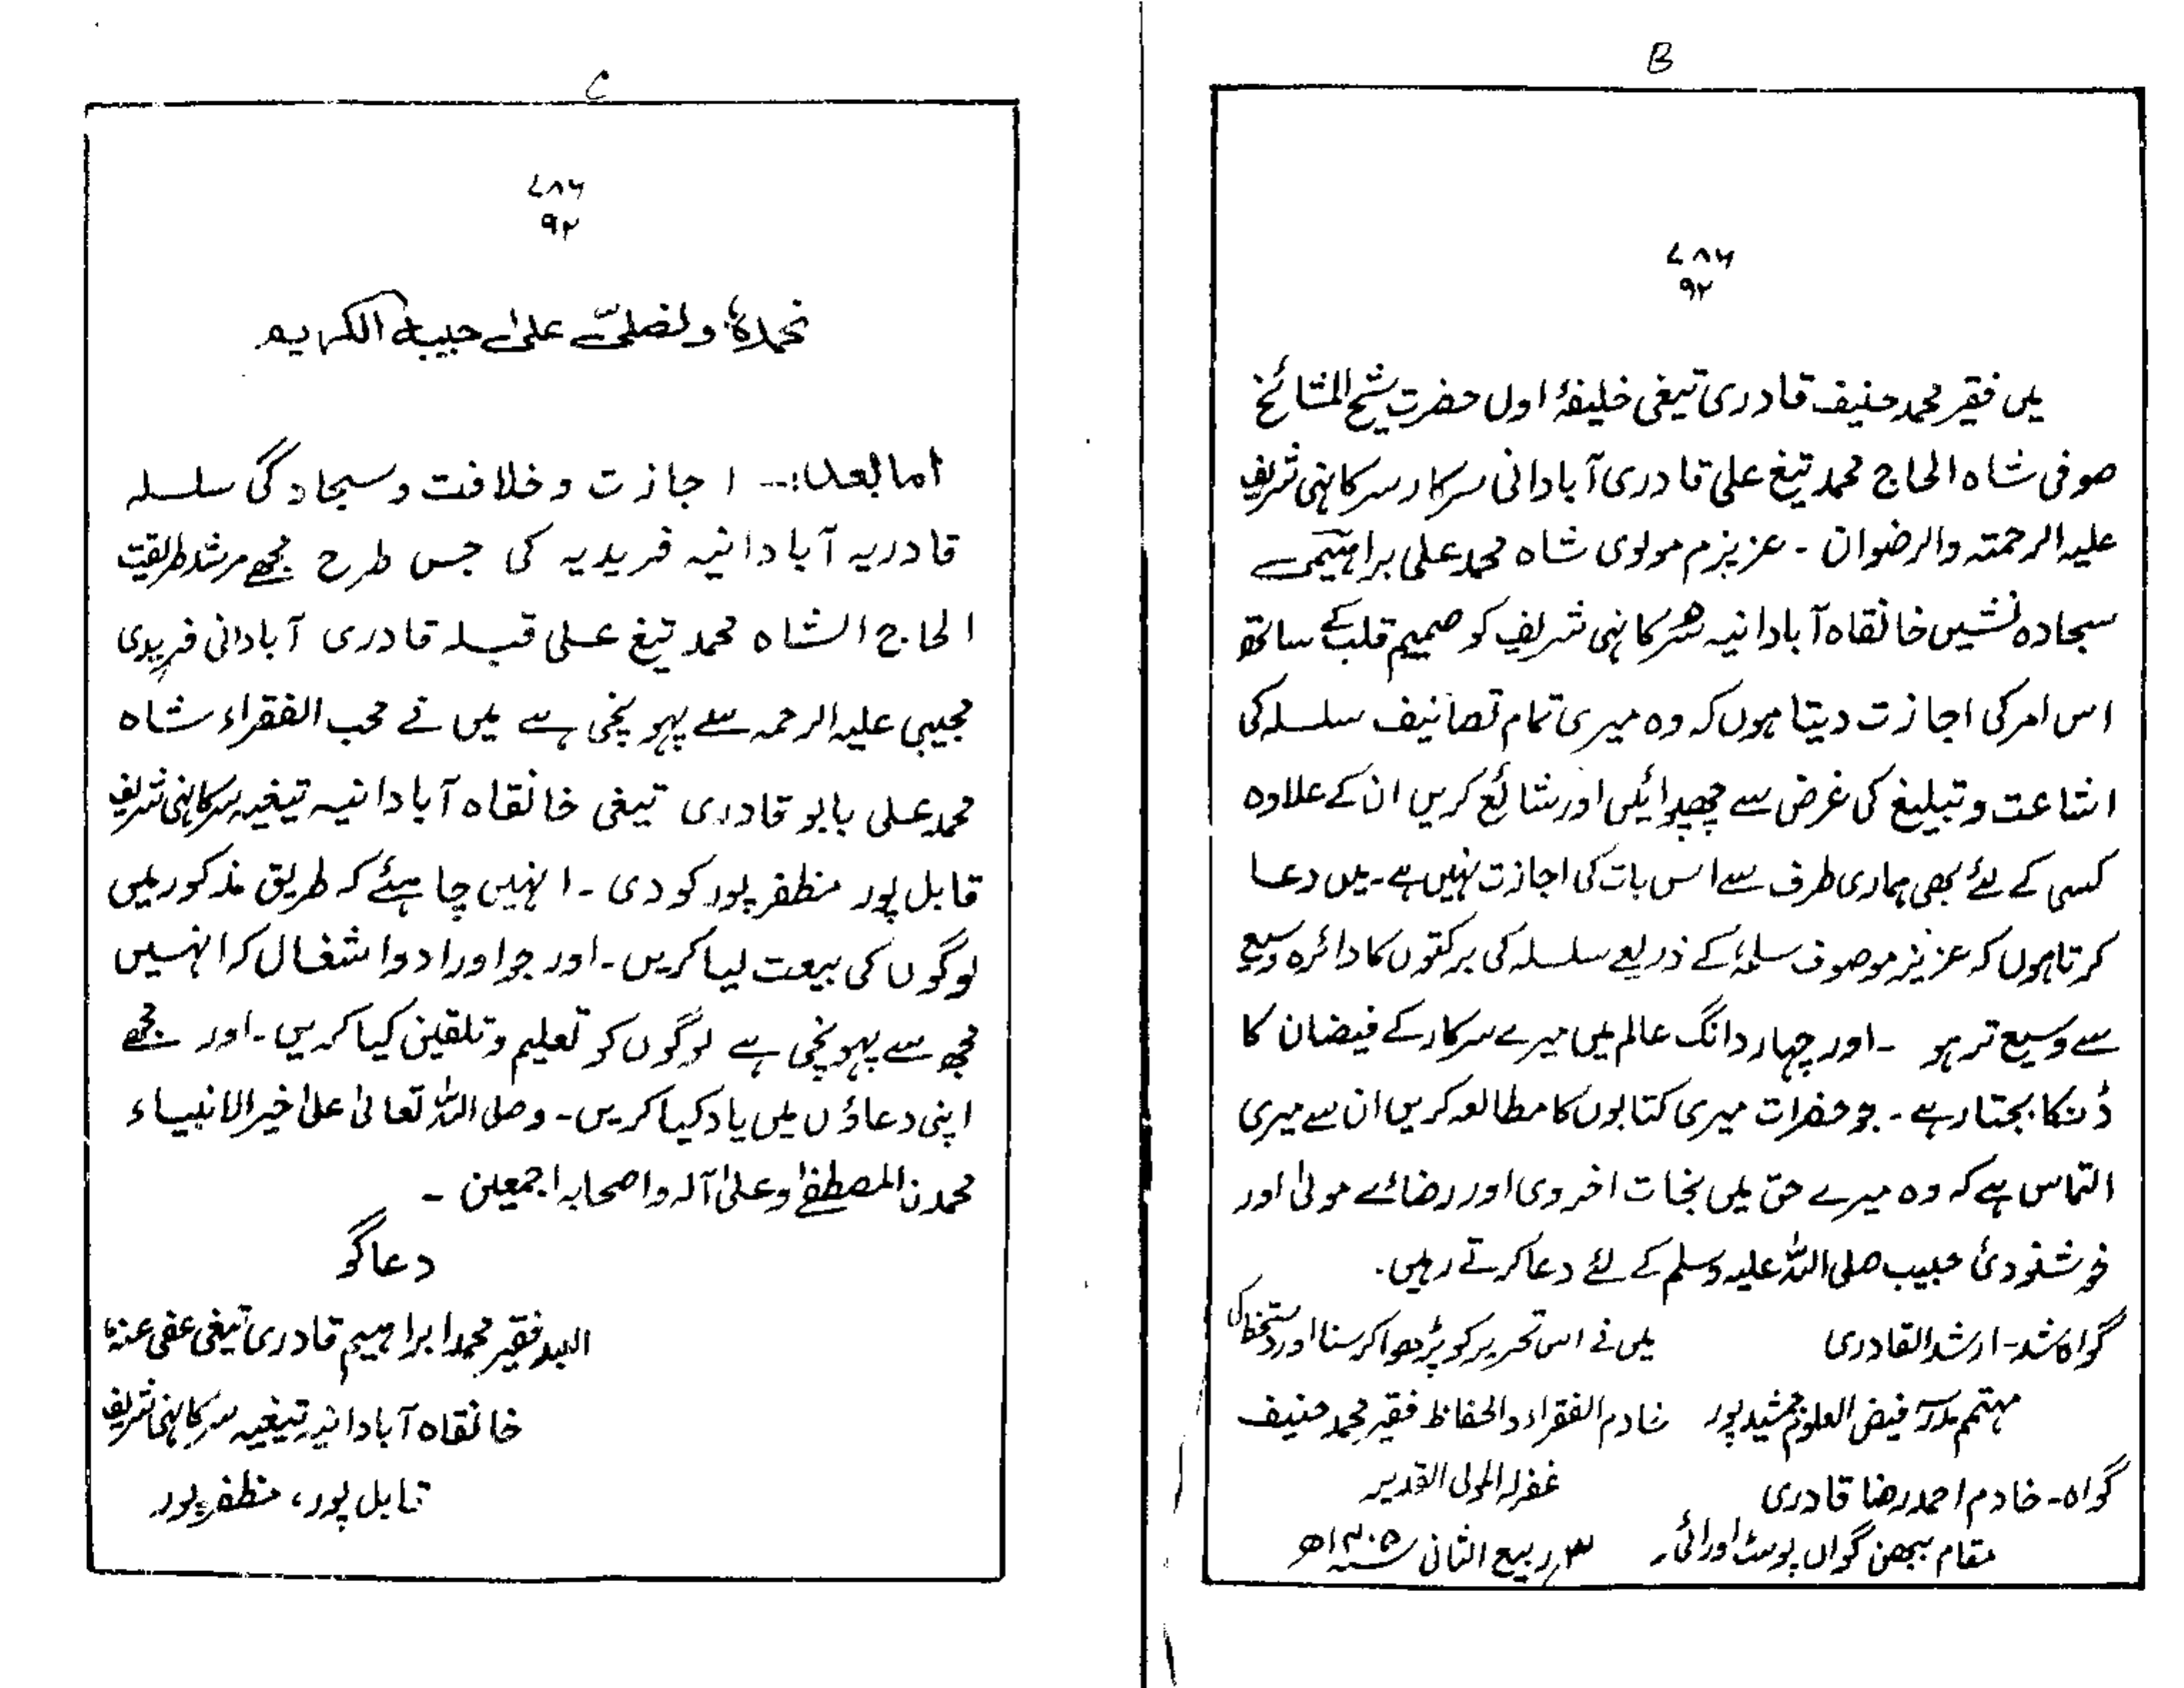 B
۷۸۶
۹۲
میں فقیر محمد حنیف قادری تیغی خلیفۂ اول حضرت شیخ المشائخ
صوفی شاہ الحاج محمد تیغ علی قادری آبادانی سرکار سرکانہی شریف
علیہ الرحمتہ والرضوان ۔ عزیزم مولوی شاہ محمد علی براہیمی
سجادہ نشیں خانقاہ آبادانیہ سرکانہی شریف کو صمیم قلب کے ساتھ
اس امر کی اجازت دیتا ہوں کہ وہ میری تمام تصانیف سلسلہ کی
اشاعت و تبلیغ کی غرض سے چھپوائیں اور شائع کریں ان کے علاوہ
کسی کے لئے بھی ہماری طرف سے اس بات کی اجازت نہیں ہے ۔ میں دعا
کرتا ہوں کہ عزیز موصوف سلمہٗ کے ذریعے سلسلہ کی برکتوں کا دائرہ وسیع
سے وسیع تر ہو ۔ اور چہار دانگ عالم میں میرے سرکار کے فیضان کا
ڈنکا بجتا رہے ۔ جو حضرات میری کتابوں کا مطالعہ کریں ان سے میری
التماس ہے کہ وہ میرے حق میں نجات اخروی اور رضائے مولیٰ اور
خوشنودئ حبیب صلی اللہ علیہ وسلم کے لئے دعا کرتے رہیں ۔
گواہ شد ۔ ارشد القادری
مہتمم مدرسہ فیض العلوم جمشید پور
گواہ ۔ خادم احمد رضا قادری
مقام بھمن گواں پوسٹ اورائی ۔
میں نے اس تحریر کو پڑھوا کر سنا اور دستخط کی
خادم الفقراء والحفاظ فقیر محمد حنیف
غفرلہ المولی القدیر
۳ ربیع الثانی ۱۴۰۵ھ
C
۷۸۶
۹۲
نحمدہٗ ونصلی علیٰ حبیبہ الکریم
اما بعد :۔ اجازت و خلافت و سجادگی سلسلہ
قادریہ آبادانیہ فریدیہ کی جس طرح مجھے مرشد طریقت
الحاج الشاہ محمد تیغ علی قبلہ قادری آبادانی فریدی
مجیبی علیہ الرحمہ سے پہونچی ہے میں نے محب الفقراء شاہ
محمد علی بابو قادری تیغی خانقاہ آبادانیہ تیغیہ سرکانہی شریف
قابل پور مظفر پور کو دی ۔ انہیں چاہئے کہ طریق مذکور میں
لوگوں کی بیعت لیا کریں ۔ اور جو اوراد و اشغال کہ انہیں
مجھ سے پہونچی ہے لوگوں کو تعلیم و تلقین کیا کریں ۔ اور مجھے
اپنی دعاؤں میں یاد کیا کریں ۔ وصلی اللہ تعالیٰ علیٰ خیر الانبیاء
محمدن المصطفےٰ وعلیٰ آلہ واصحابہ اجمعین ۔
دعا گو
العبد فقیر محمد ابراہیم قادری تیغی عفی عنہٗ
خانقاہ آبادانیہ تیغیہ سرکانہی شریف
قابل پور، مظفر پور